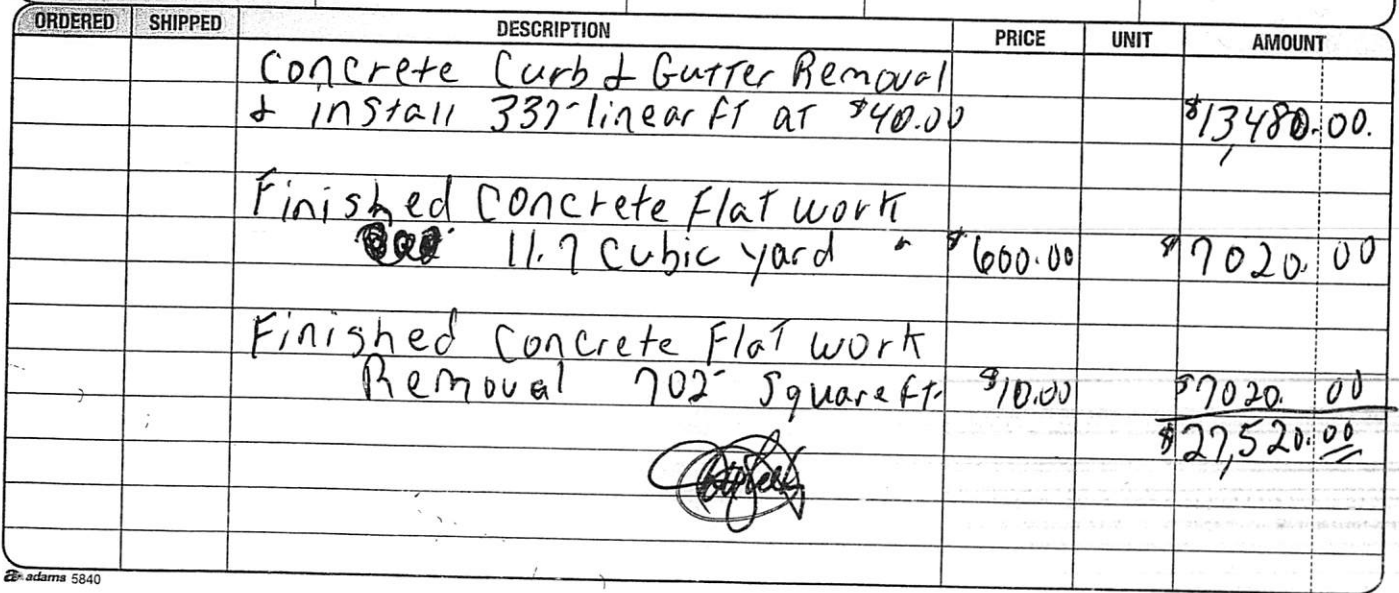 ORDERED SHIPPED DESCRIPTION PRICE UNIT AMOUNT
Concrete Curb & Gutter Removal
& install 337 linear FT at $40.00 $13,480.00.
Finished Concrete Flat work
11.7 Cubic yard $600.00 $7020.00
Finished Concrete Flat work
Removal 702 Square Ft. $10.00 $7020.00
$27,520.00
adams 5840